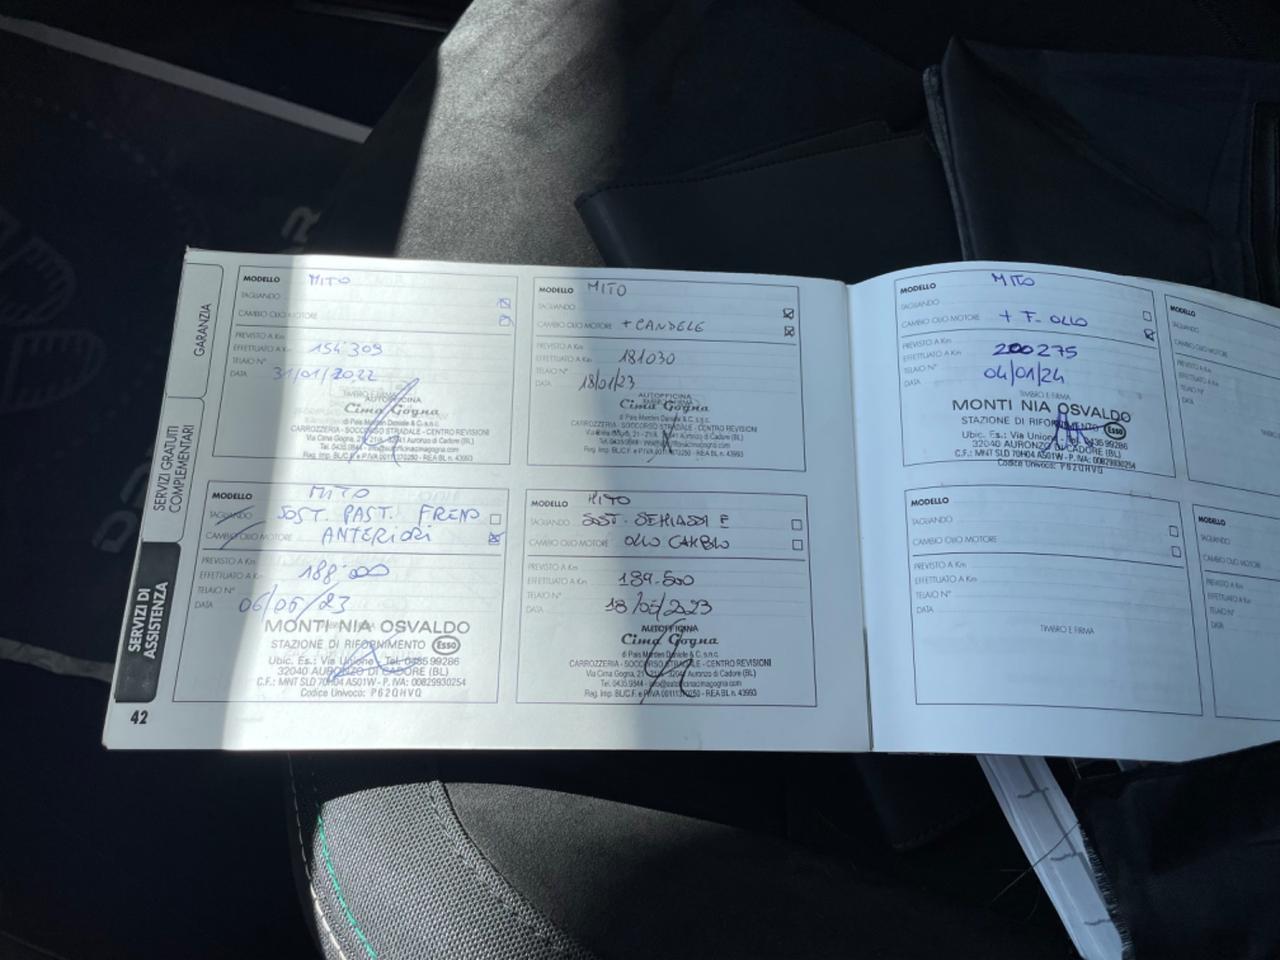 GARANZIA
SERVIZI GRATUITI
COMPLEMENTARI
SERVIZI DI
ASSISTENZA
42
MODELLO MITO
TAGLIANDO
CAMBIO OLIO MOTORE
PREVISTO A Km
EFFETTUATO A Km 154309
TELAIO N°
DATA 31/01/2022
TIMBRO E FIRMA
AUTOFFICINA
Cima Gogna
CARROZZERIA - SOCCORSO STRADALE - CENTRO REVISIONI
MODELLO MITO
TAGLIANDO
CAMBIO OLIO MOTORE + CANDELE
PREVISTO A Km
EFFETTUATO A Km 181030
TELAIO N°
DATA 18/01/23
AUTOFFICINA
Cima Gogna
di Pais Marden Daniele & C. s.n.c.
CARROZZERIA - SOCCORSO STRADALE - CENTRO REVISIONI
MODELLO MITO
TAGLIANDO SOST. PAST. FRENO
CAMBIO OLIO MOTORE ANTERIORI
PREVISTO A Km
EFFETTUATO A Km 188.000
TELAIO N°
DATA 06/05/23
MONTI NIA OSVALDO
STAZIONE DI RIFORNIMENTO Esso
Ubic. Es.: Via Unione Tel. 0435 99286
32040 AURONZO DI CADORE (BL)
C.F.: MNT SLD 70H04 A501W - P. IVA: 00829930254
Codice Univoco: P62QHVQ
MODELLO MITO
TAGLIANDO SOST.
CAMBIO OLIO MOTORE OLIO CAMBIO
PREVISTO A Km
EFFETTUATO A Km 189.500
TELAIO N°
DATA 18/05/2023
AUTOFFICINA
Cima Gogna
di Pais Marden Daniele & C. s.n.c.
CARROZZERIA - SOCCORSO STRADALE - CENTRO REVISIONI
Via Cima Gogna, 21 - 21/A - 32041 Auronzo di Cadore (BL)
Tel. 0435.9844 - info@autofficinacimagogna.com
Reg. Imp. BL/C.F. e P.IVA 00111370250 - REA BL n. 43993
MODELLO MITO
TAGLIANDO
CAMBIO OLIO MOTORE + F. OLIO
PREVISTO A Km
EFFETTUATO A Km 200275
TELAIO N°
DATA 04/01/24
TIMBRO E FIRMA
MONTI NIA OSVALDO
STAZIONE DI RIFORNIMENTO Esso
Ubic. Es.: Via Unione Tel. 0435 99286
32040 AURONZO DI CADORE (BL)
C.F.: MNT SLD 70H04 A501W - P. IVA: 00829930254
Codice Univoco: P62QHVQ
MODELLO
TAGLIANDO
CAMBIO OLIO MOTORE
PREVISTO A Km
EFFETTUATO A Km
TELAIO N°
DATA
TIMBRO E FIRMA
MODELLO
TAGLIANDO
CAMBIO OLIO MOTORE
PREVISTO A Km
EFFETTUATO A Km
TELAIO N°
DATA
MODELLO
TAGLIANDO
CAMBIO OLIO MOTORE
PREVISTO A Km
EFFETTUATO A Km
TELAIO N°
DATA